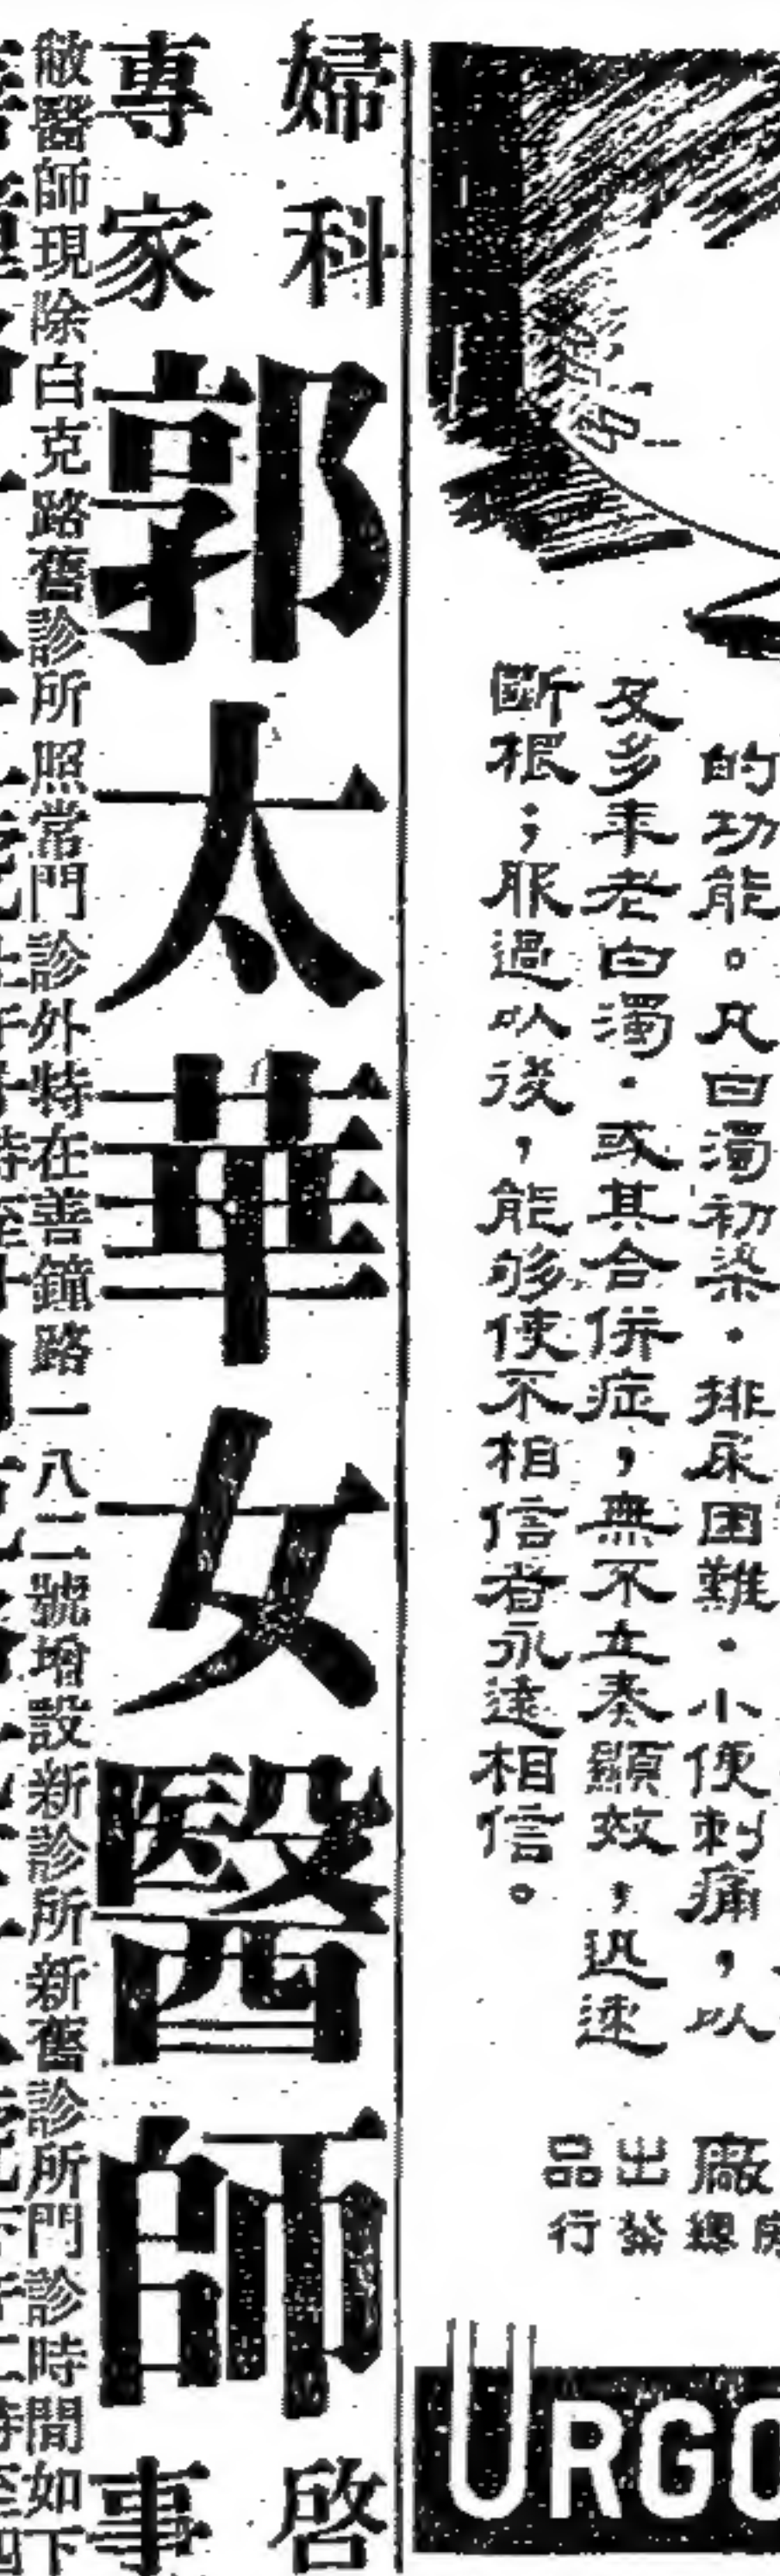 的功能。凡白濁初染．排尿困難．小便刺痛，以
及多年老白濁．或其合併症，無不立奏顯效，迅速
斷根；服過以後，能够使不相信者永遠相信。
廠
出品
總
發行
URGO
婦科專家
郭太華女醫師
啓事
敝醫師現除白克路舊診所照常門診外特在善鐘路一八二號增設新診所新舊診所門診時間如下